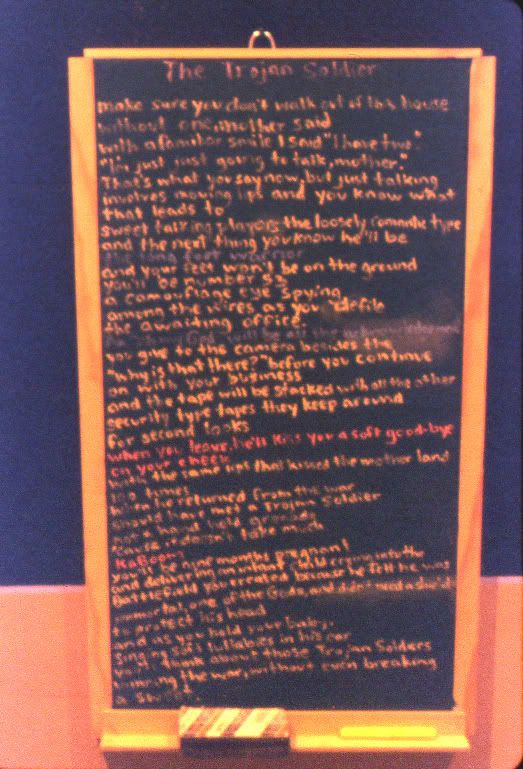 The Trojan Soldier
make sure you don't walk out of this house
without one, mother said
with a familiar smile I said "I have two."
"I'm just just going to talk, mother."
That's what you say now, but just talking
involves moving lips and you know what
that leads to
sweet talking players the loosely, romantic type
and the next thing you know he'll be
the long feet warrior
and your feet won't be on the ground
you'll be numberless
a camouflage eye spying
among the wires as you
the awaiting office.
you give to the camera besides the
"why is that there?" before you continue
on with your business
and the tape will be stacked with all the other
security type tapes they keep around
for second looks
when you leave, he'll kiss you a soft good-bye
on your cheek
with the same lips that kissed the mother land
100 times
when he returned from the war
should have met a Trojan Soldier
not a hand held grenade
cause it doesn't take much
KaBoom!
you'll be nine months pregnant
and delivering an infant child crying into the
battlefield you created because he felt he was
immortal, one of the Gods, and didn't need a shield
to protect his head
and as you hold your baby,
singing soft lullabies in his ear
you'll think about those Trojan Solders
winning the war, without even breaking
a sweat.